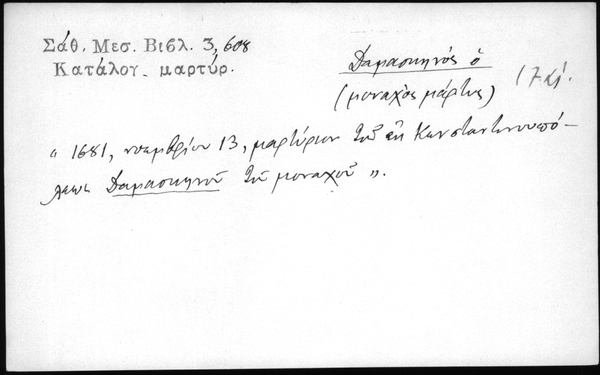 Σάθ. Μεσ. Βιβλ. 3, 608
Κατάλογ. μαρτύρ.
Δαμασκηνός ὁ
(μοναχὸς μάρτυς)
17 αἰ.
" 1681, νοεμβρίου 13, μαρτύριον τοῦ ἐκ Κωνσταντινουπό-
λεως Δαμασκηνοῦ τοῦ μοναχοῦ ".